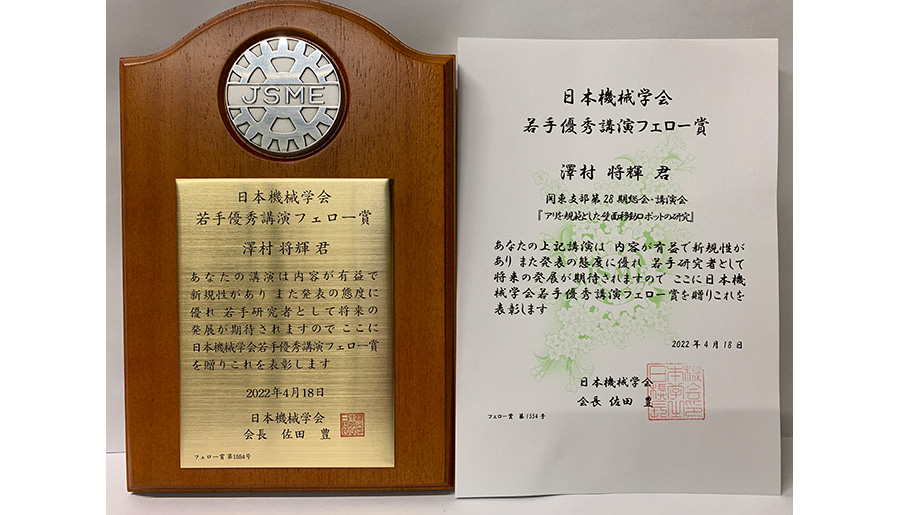 JSME
日本機械学会
若手優秀講演フェロー賞
澤村 将輝 君
あなたの講演は内容が有益で
新規性があり また発表の態度に
優れ 若手研究者として将来の
発展が期待されますので ここに
日本機械学会若手優秀講演フェロー賞
を贈りこれを表彰します
2022年4月18日
日本機械学会
会長 佐田 豊
フェロー賞 第1554号
日本機械学会
若手優秀講演フェロー賞
澤村 将輝 君
関東支部第28期総会・講演会
『アリを規範とした壁面移動ロボットの研究』
あなたの上記講演は 内容が有益で新規性が
あり また発表の態度に優れ 若手研究者として
将来の発展が期待されますので ここに日本機
械学会若手優秀講演フェロー賞を贈りこれを
表彰します
2022年4月18日
日本機械学会
会長 佐田 豊
フェロー賞 第1554号